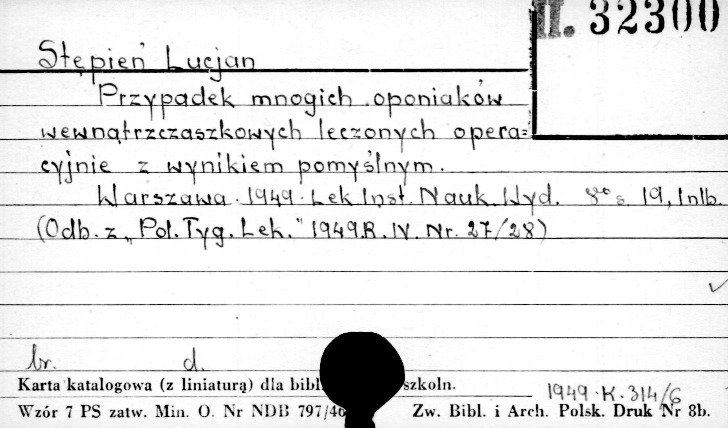 II. 32300
Stępień Lucjan
Przypadek mnogich oponiaków
wewnątrzczaszkowych leczonych opera=
cyjnie z wynikiem pomyślnym.
Warszawa. 1949. Lek. Inst. Nauk. Wyd. 8° s. 19, 1 nlb.
(Odb. z „Pol. Tyg. Lek." 1949.R. IV. Nr. 27/28)
br. d.
Karta katalogowa (z liniaturą) dla bibl szkoln.
1949.K.314/6
Wzór 7 PS zatw. Min. O. Nr NDB 797/46 Zw. Bibl. i Arch. Polsk. Druk Nr 8b.